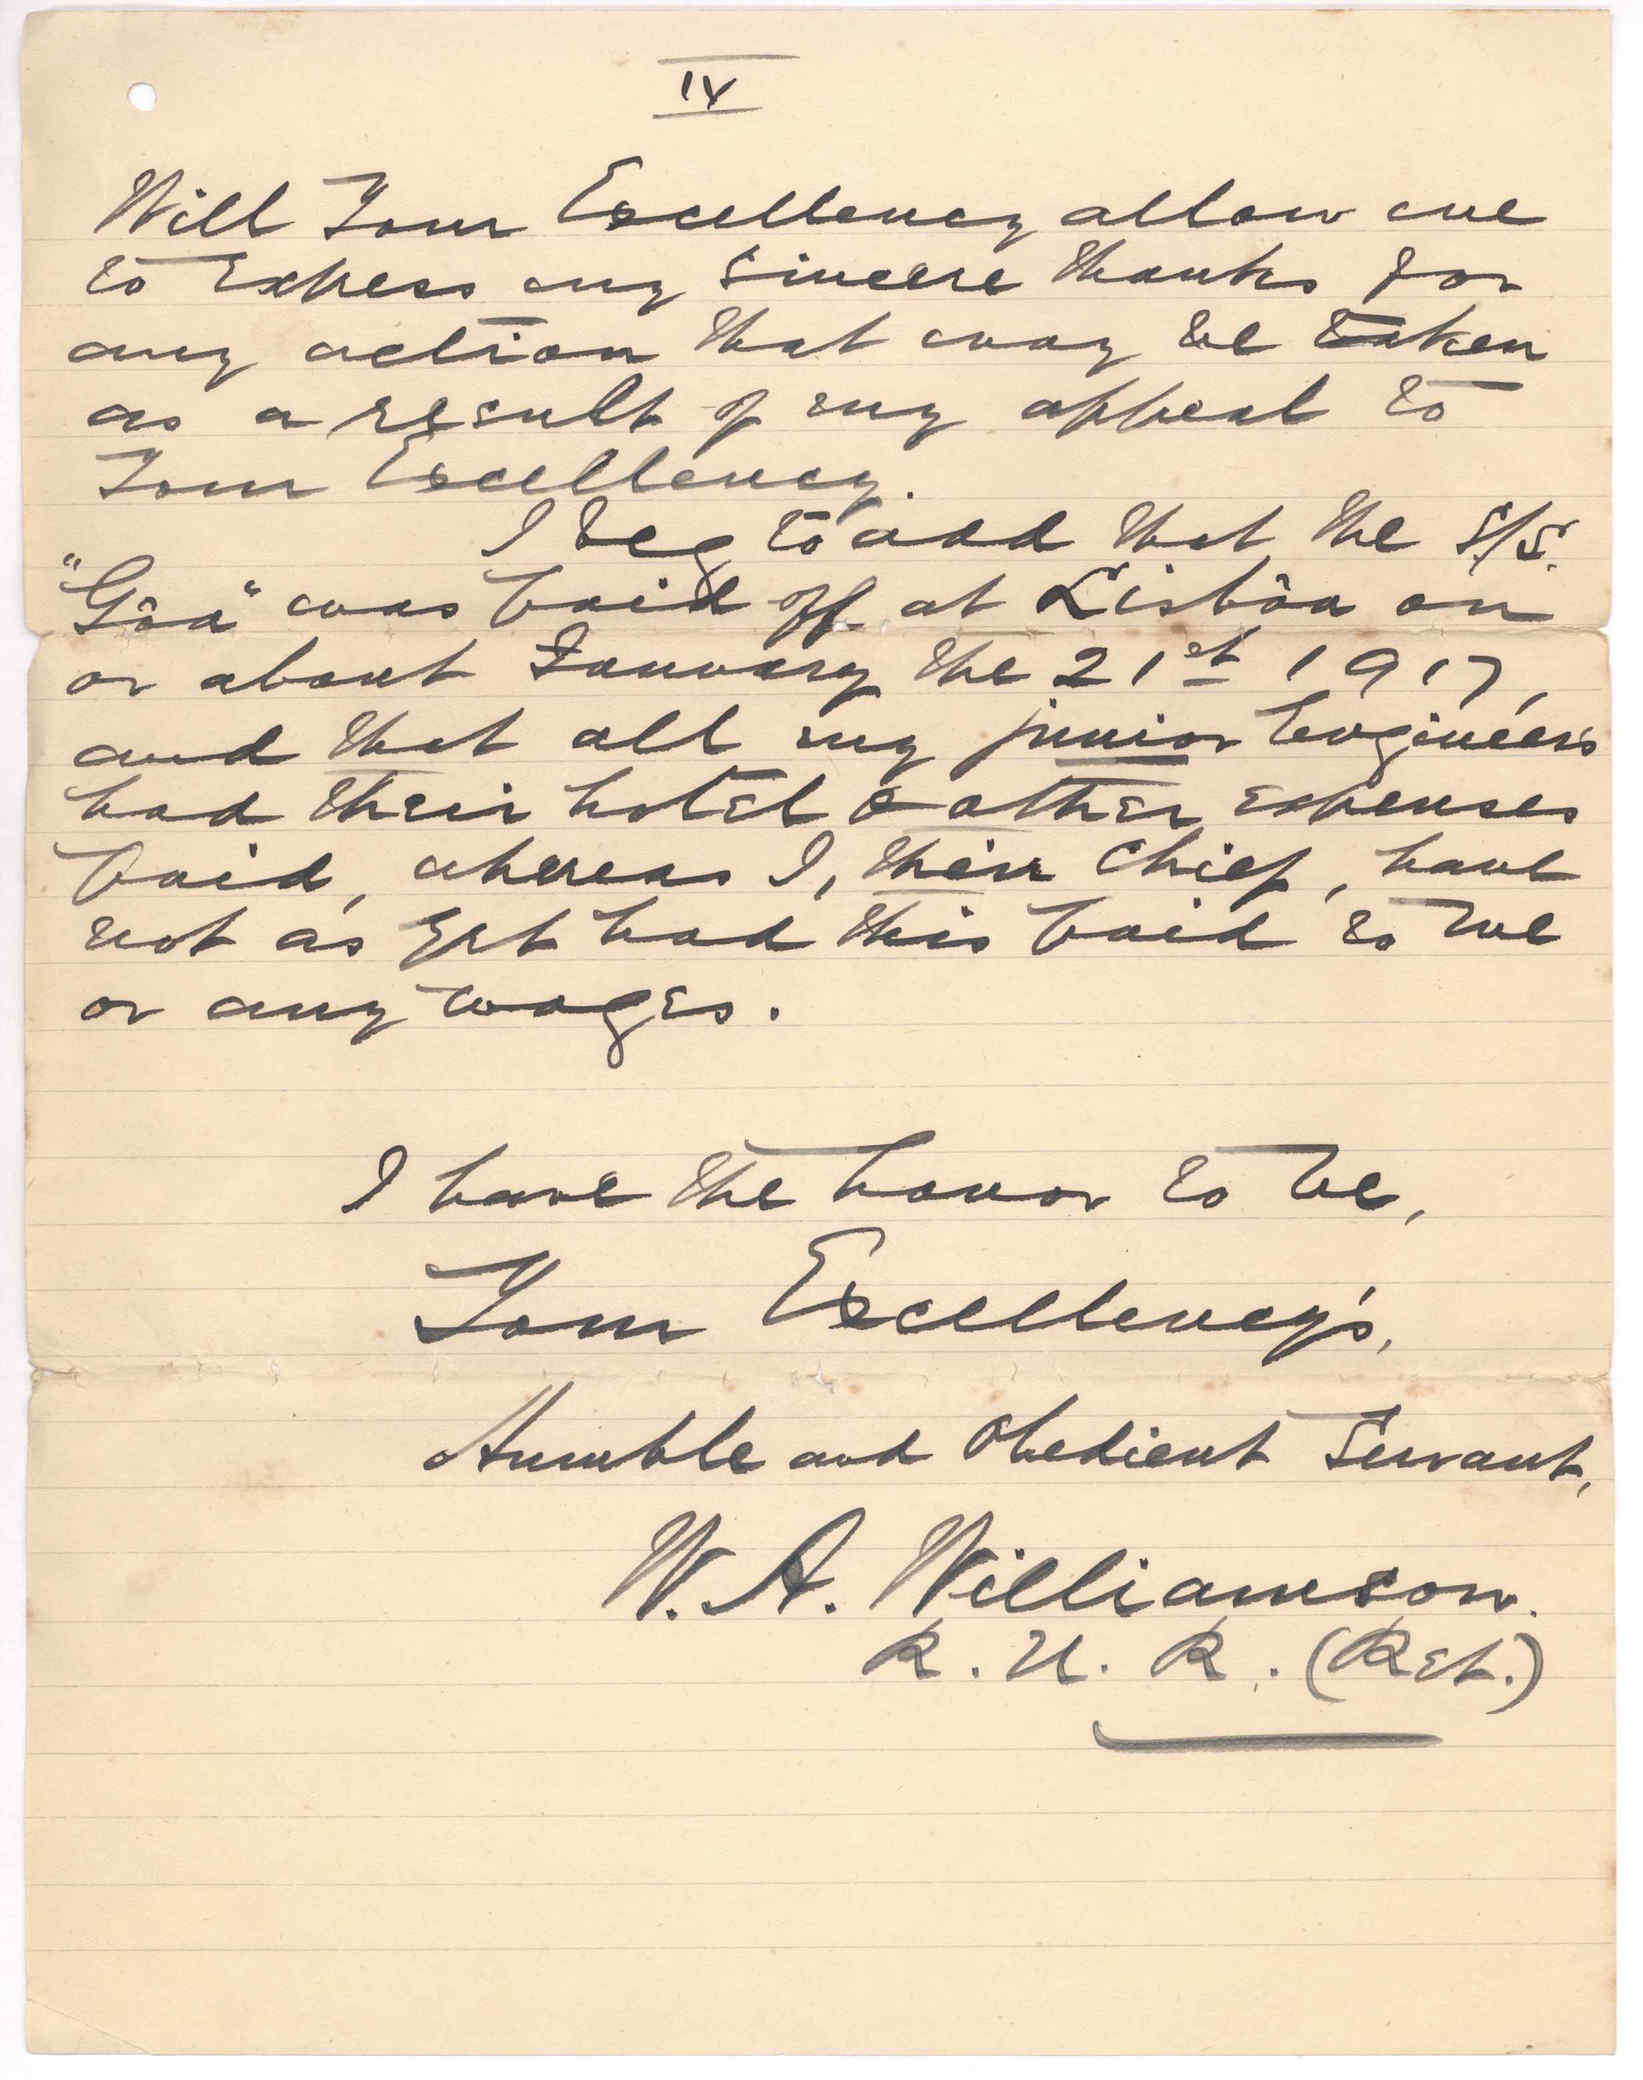 IV
Will Your Excellency allow me
to express my sincere thanks for
any action that may be taken
as a result of my appeal to
Your Excellency.
I beg to add that the S/S.
"Gôa" was paid off at Lisbôa on
or about January the 21st 1917,
and that all my junior Engineers
had their hotel & other expenses
paid, whereas I, their Chief, have
not as yet had this paid to me
or any wages.
I have the honor to be,
Your Excellency's,
Humble and Obedient Servant,
W. A. Williamson.
R. N. R. (Ret.)